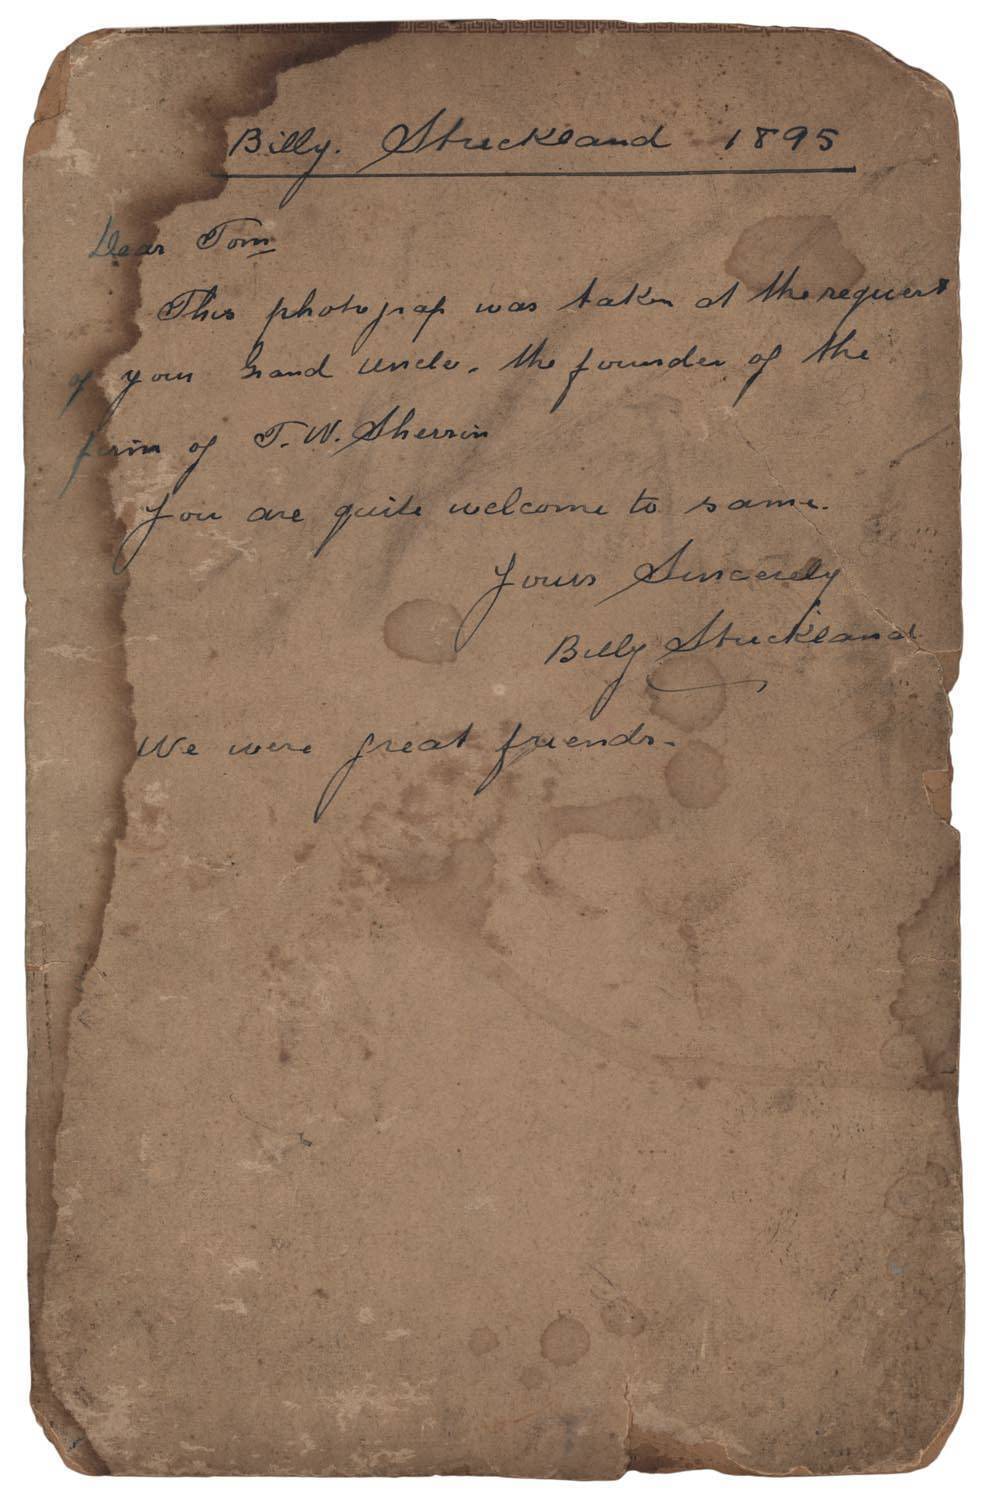 Billy. Strickland 1895
Dear Tom
This photograp was taken at the request
of your Grand Uncle. the founder of the
firm of T. W. Sherrin
You are quite welcome to same.
Yours Sincerely
Billy Strickland
We were great friends.